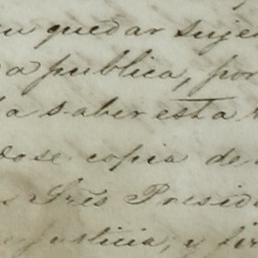 quedar suje
a publica, por
a saber esta
dose copia de
s Sres Presid
justicia, y fir